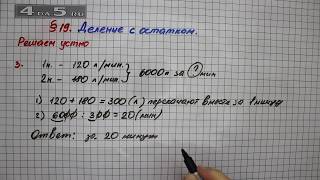 4 da 5.RU
§ 19. Деление с остатком.
Решаем устно
3.
1н. - 120 л/мин.
2н. - 180 л/мин. } 6000л за ? мин
1) 120 + 180 = 300 (л) перекачают вместе за 1 минуту
2) 6000 : 300 = 20 (мин)
Ответ: за 20 минут